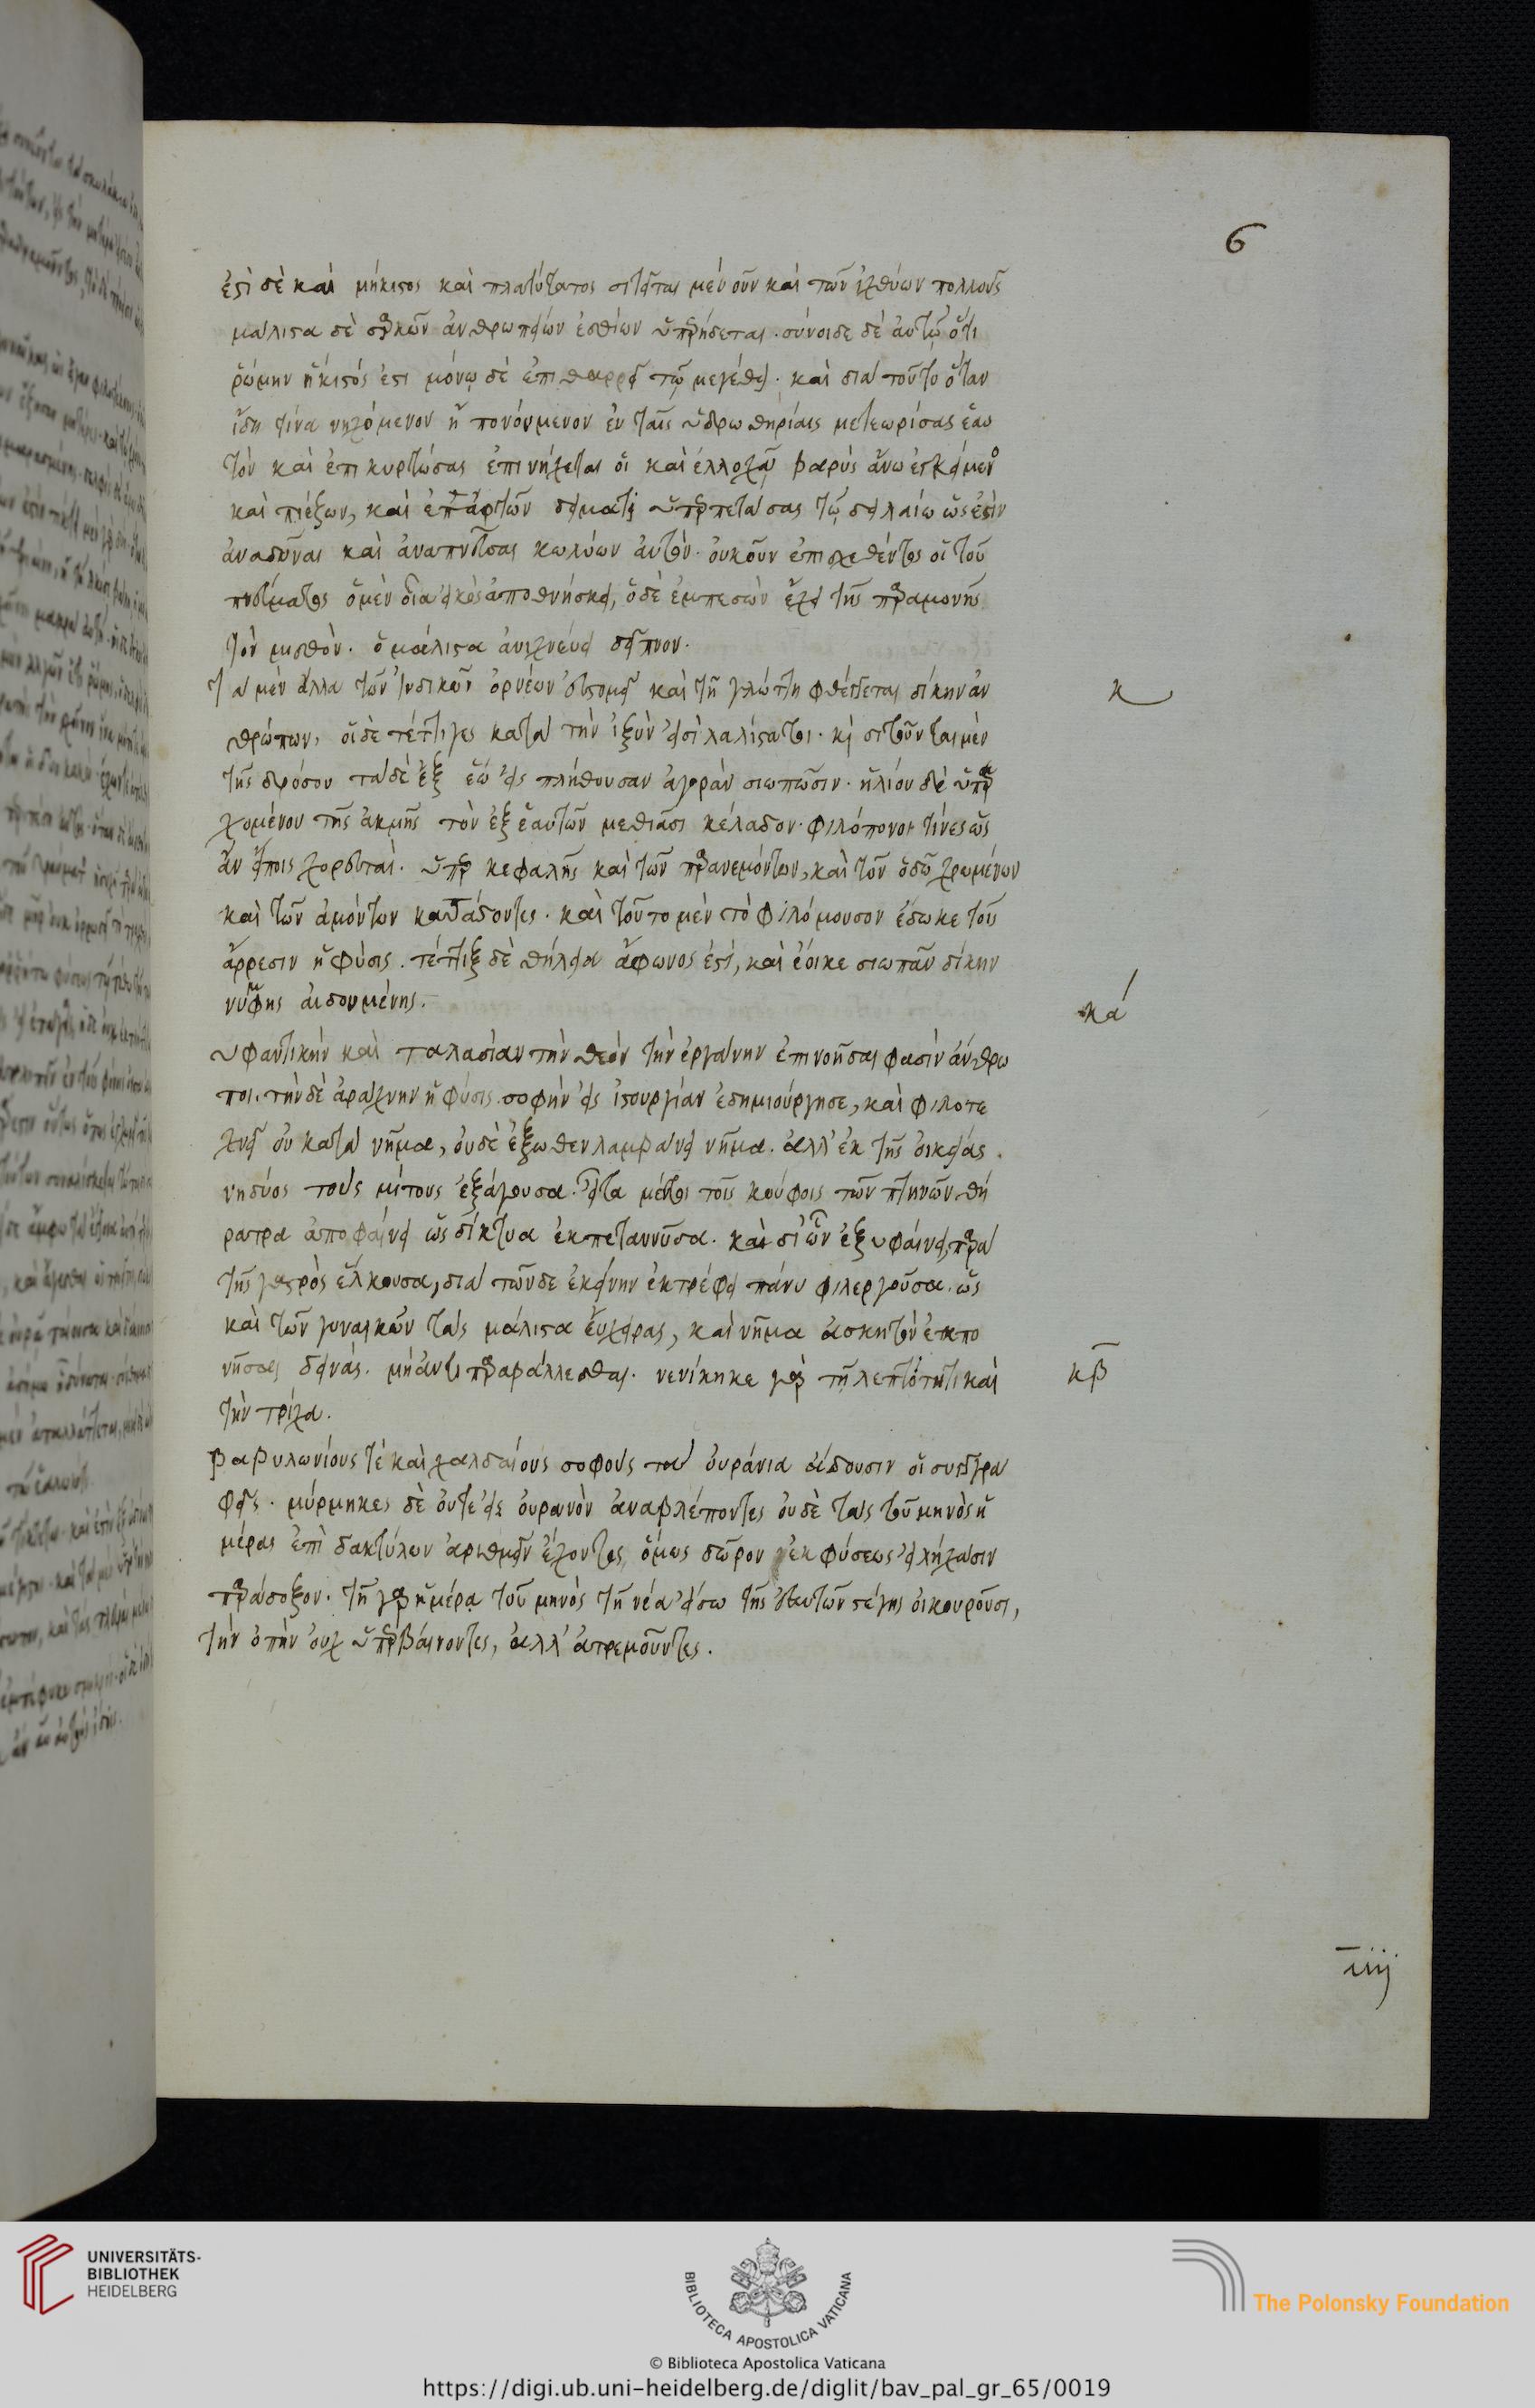 6
ἐστὶ δὲ καὶ μήκιστος καὶ πλατύτατος σιτεῖται μὲν οὖν καὶ τῶν ἰχθύων πολλοὺς
μάλιστα δὲ σαρκῶν ἀνθρωπείων ἐσθίων ὑπερήδεται. σύνοιδε δὲ αὑτῷ ὅτι
ῥώμην ἥκιστός ἐστι μόνῳ δὲ ἐπιθαρρεῖ τῷ μεγέθει. καὶ διὰ τοῦτο ὅταν
ἴδῃ τινὰ νηχόμενον ἢ πονούμενον ἐν ταῖς ὑδροθηρίαις μετεωρίσας ἑαυ
τὸν καὶ ἐπικυρτώσας ἐπινήχεται οἱ καὶ ἐλλοχᾷ βαρὺς ἄνω ἐγκείμενος
καὶ πιέζων, καὶ ἐπαρτῶν δείματι ὑπερπετάσας τῷ δειλαίῳ ὡς
ἀναδῦναι καὶ ἀναπνεῦσαι κωλύων αὐτόν. οὐκοῦν ἐπισχεθέντος οἱ τοῦ
πνεύματος ὁ μὲν διὰ εἰκὸς ἀποθνήσκει, ὁ δὲ ἐμπεσὼν ἔχει τῆς παραμονῆς
τὸν μισθὸν. ὃ μάλιστα ἀνιχνεύει δεῖπνον.
Τὰ μὲν ἄλλα τῶν Ἰνδικῶν ὀρνέων εὐστομεῖ καὶ τῇ γλώττῃ φθέγγεται δίκην ἀν
θρώπων, οἱ δὲ τέττιγες κατὰ τὴν ἰξὺν εἰσὶ λαλίστατοι. καὶ σιτοῦνται μὲν
κ
τῆς δρόσου τὰ δὲ ἐξ ἕω εἰς πλήθουσαν ἀγορὰν σιωπῶσιν. ἡλίου δὲ ὑπαρ
χομένου τῆς ἀκμῆς τὸν ἐξ ἑαυτῶν μεθιᾶσι κέλαδον. φιλόπονοι τινὲς ὡς
ἂν εἴποις χορευταί. ὑπὲρ κεφαλῆς καὶ τῶν παρανεμόντων, καὶ τῶν ὁδῷ χρωμένων
καὶ τῶν ἀμόντων κατάδοντες. καὶ τοῦτο μὲν τὸ φιλόμουσον ἔδωκε τοῖς
ἄρρεσιν ἡ φύσις. τέττιξ δὲ θήλεια ἄφωνος ἐστί, καὶ ἔοικε σιωπᾶν δίκην
νύμφης αἰδουμένης.
κά
ὑφαντικὴν καὶ ταλασίαν τὴν θεὸν τὴν ἐργάνην ἐπινοῆσαι φασὶν ἄνθρω
ποι. τὴν δὲ ἀράχνην ἡ φύσις σοφὴν εἰς ἱστουργίαν ἐδημιούργησε, καὶ φιλοτε
χνεῖ οὐ κατὰ νῆμα, οὐδὲ ἔξωθεν λαμβάνει νῆμα. ἀλλ' ἐκ τῆς οἰκείας.
νηδύος τοὺς μίτους ἐξάγουσα. εἶτα μέντοι τοῖς κούφοις τῶν πτηνῶν θή
ρατρα ἀποφαίνει ὡς δίκτυα ἐκπεταννῦσα. καὶ δι' ὧν ἐξυφαίνει, παρὰ
τῆς γαστρὸς ἕλκουσα, διὰ τῶνδε ἐκείνην ἐκτρέφει πάνυ φιλεργοῦσα. ὡς
καὶ τῶν γυναικῶν τὰς μάλιστα εὔχειρας, καὶ νῆμα ἀσκητὸν ἐκπο
νῆσαι δεινάς. μὴ ἀντιπαραβάλλεσθαι. νενίκηκε γὰρ τῇ λεπτότητι καὶ
τὴν τρίχα.
κβ
βαβυλωνίους τὲ καὶ χαλδαίους σοφοὺς τὰ οὐράνια ᾄδουσιν οἱ συγγρα
φεῖς. μύρμηκες δὲ οὔτε εἰς οὐρανὸν ἀναβλέποντες οὐδὲ τὰς τοῦ μηνὸς ἡ
μέρας ἐπὶ δακτύλων ἀριθμεῖν ἔχοντες, ὅμως δῶρον ἐκ φύσεως εἰλήχασιν
παράδοξον. τῇ γὰρ ἡμέρᾳ τοῦ μηνὸς τῇ νέᾳ εἴσω τῆς ἑαυτῶν στέγης οἰκουροῦσι,
τὴν ὀπὴν οὐχ ὑπερβαίνοντες, ἀλλ' ἀτρεμοῦντες.
iiij
UNIVERSITÄTS-
BIBLIOTHEK
HEIDELBERG
BIBLIOTECA APOSTOLICA VATICANA
The Polonsky Foundation
© Biblioteca Apostolica Vaticana
https://digi.ub.uni-heidelberg.de/diglit/bav_pal_gr_65/0019